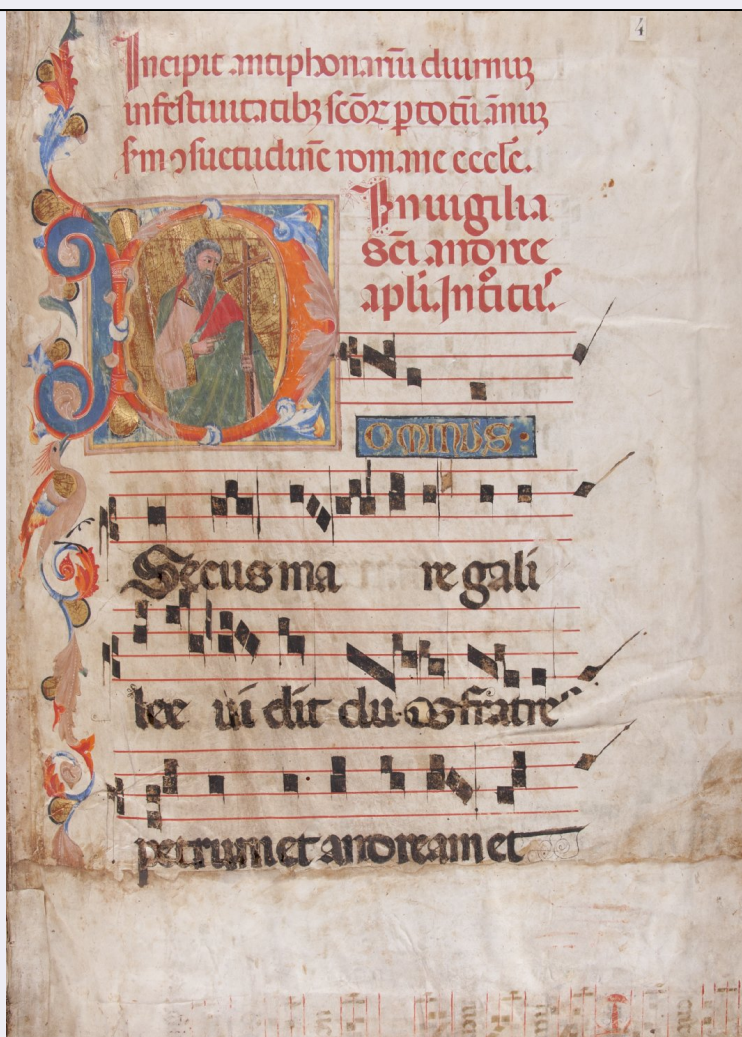 4
Incipit antiphonariũ diurnuʒ
in festiuitatibʒ scõꝝ p totũ ãnuʒ
sm ɔsuetudinẽ romane eccle.
In uigilia
sci andree
apli. Introitus.
DOMINUS·
Secus ma re gali
lee ui dit du os fratres
petrum et andream et